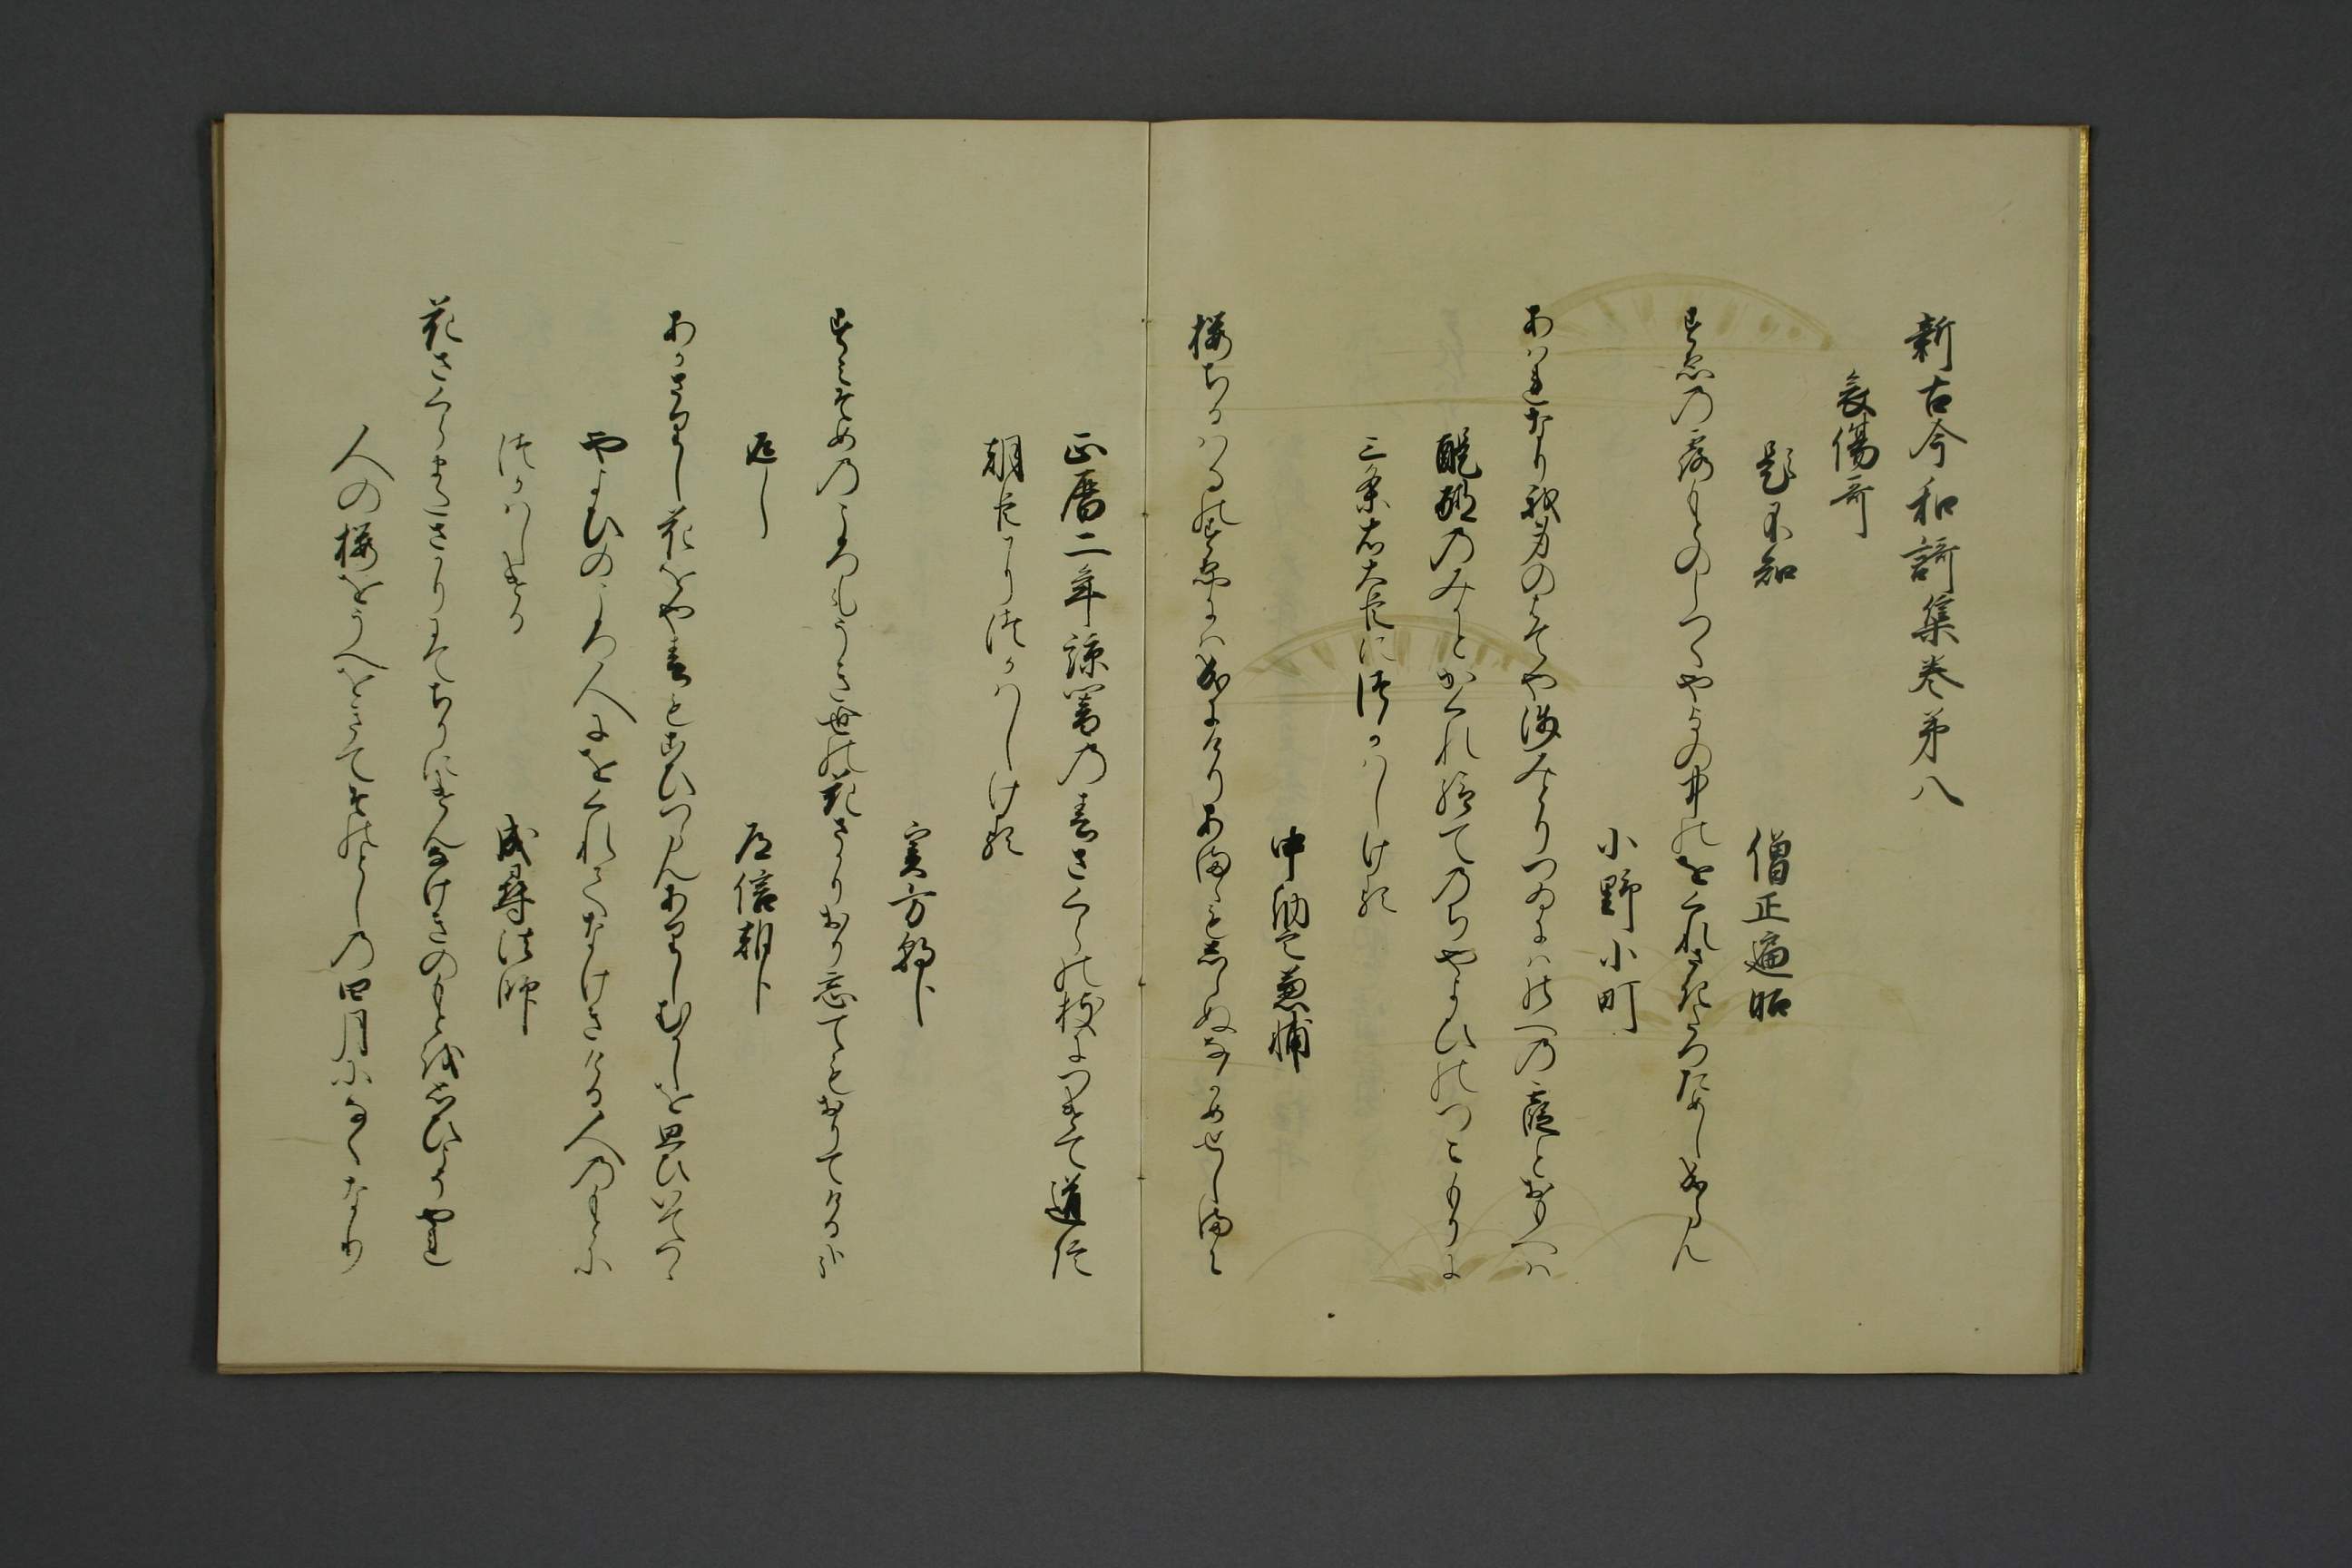 新古今和謌集巻第八
哀傷哥
題不知
僧正遍昭
すゑの露もとのしつくや世の中のをくれさきたつためしなるらん
小野小町
あはれなり我身のはてや浅みとりつゐには野への霞とおもへは
醍醐のみかとかくれ給てのちやよひのつこもりに
三条右大臣につかはしける
中納言兼輔
桜ちるはるのすゑには成にけりあままもしらぬなかめせしまに
正暦二年諒闇の春さくらの枝につけて道信
朝臣につかはしける
実方朝臣
すみそめのころもうき世の花さかりおり忘てもおりてけるかな
返し
道信朝臣
あかさりし花をや春もこひつらんありしむかしを思ひいてつゝ
やよひのころ人にをくれてなけきける人のもとに
つかはしける
成尋法師
花さくらまたさかりにてちりにけんなけきのもとを思ひこそやれ
人の桜をうへをきてそのとしの四月になくなり